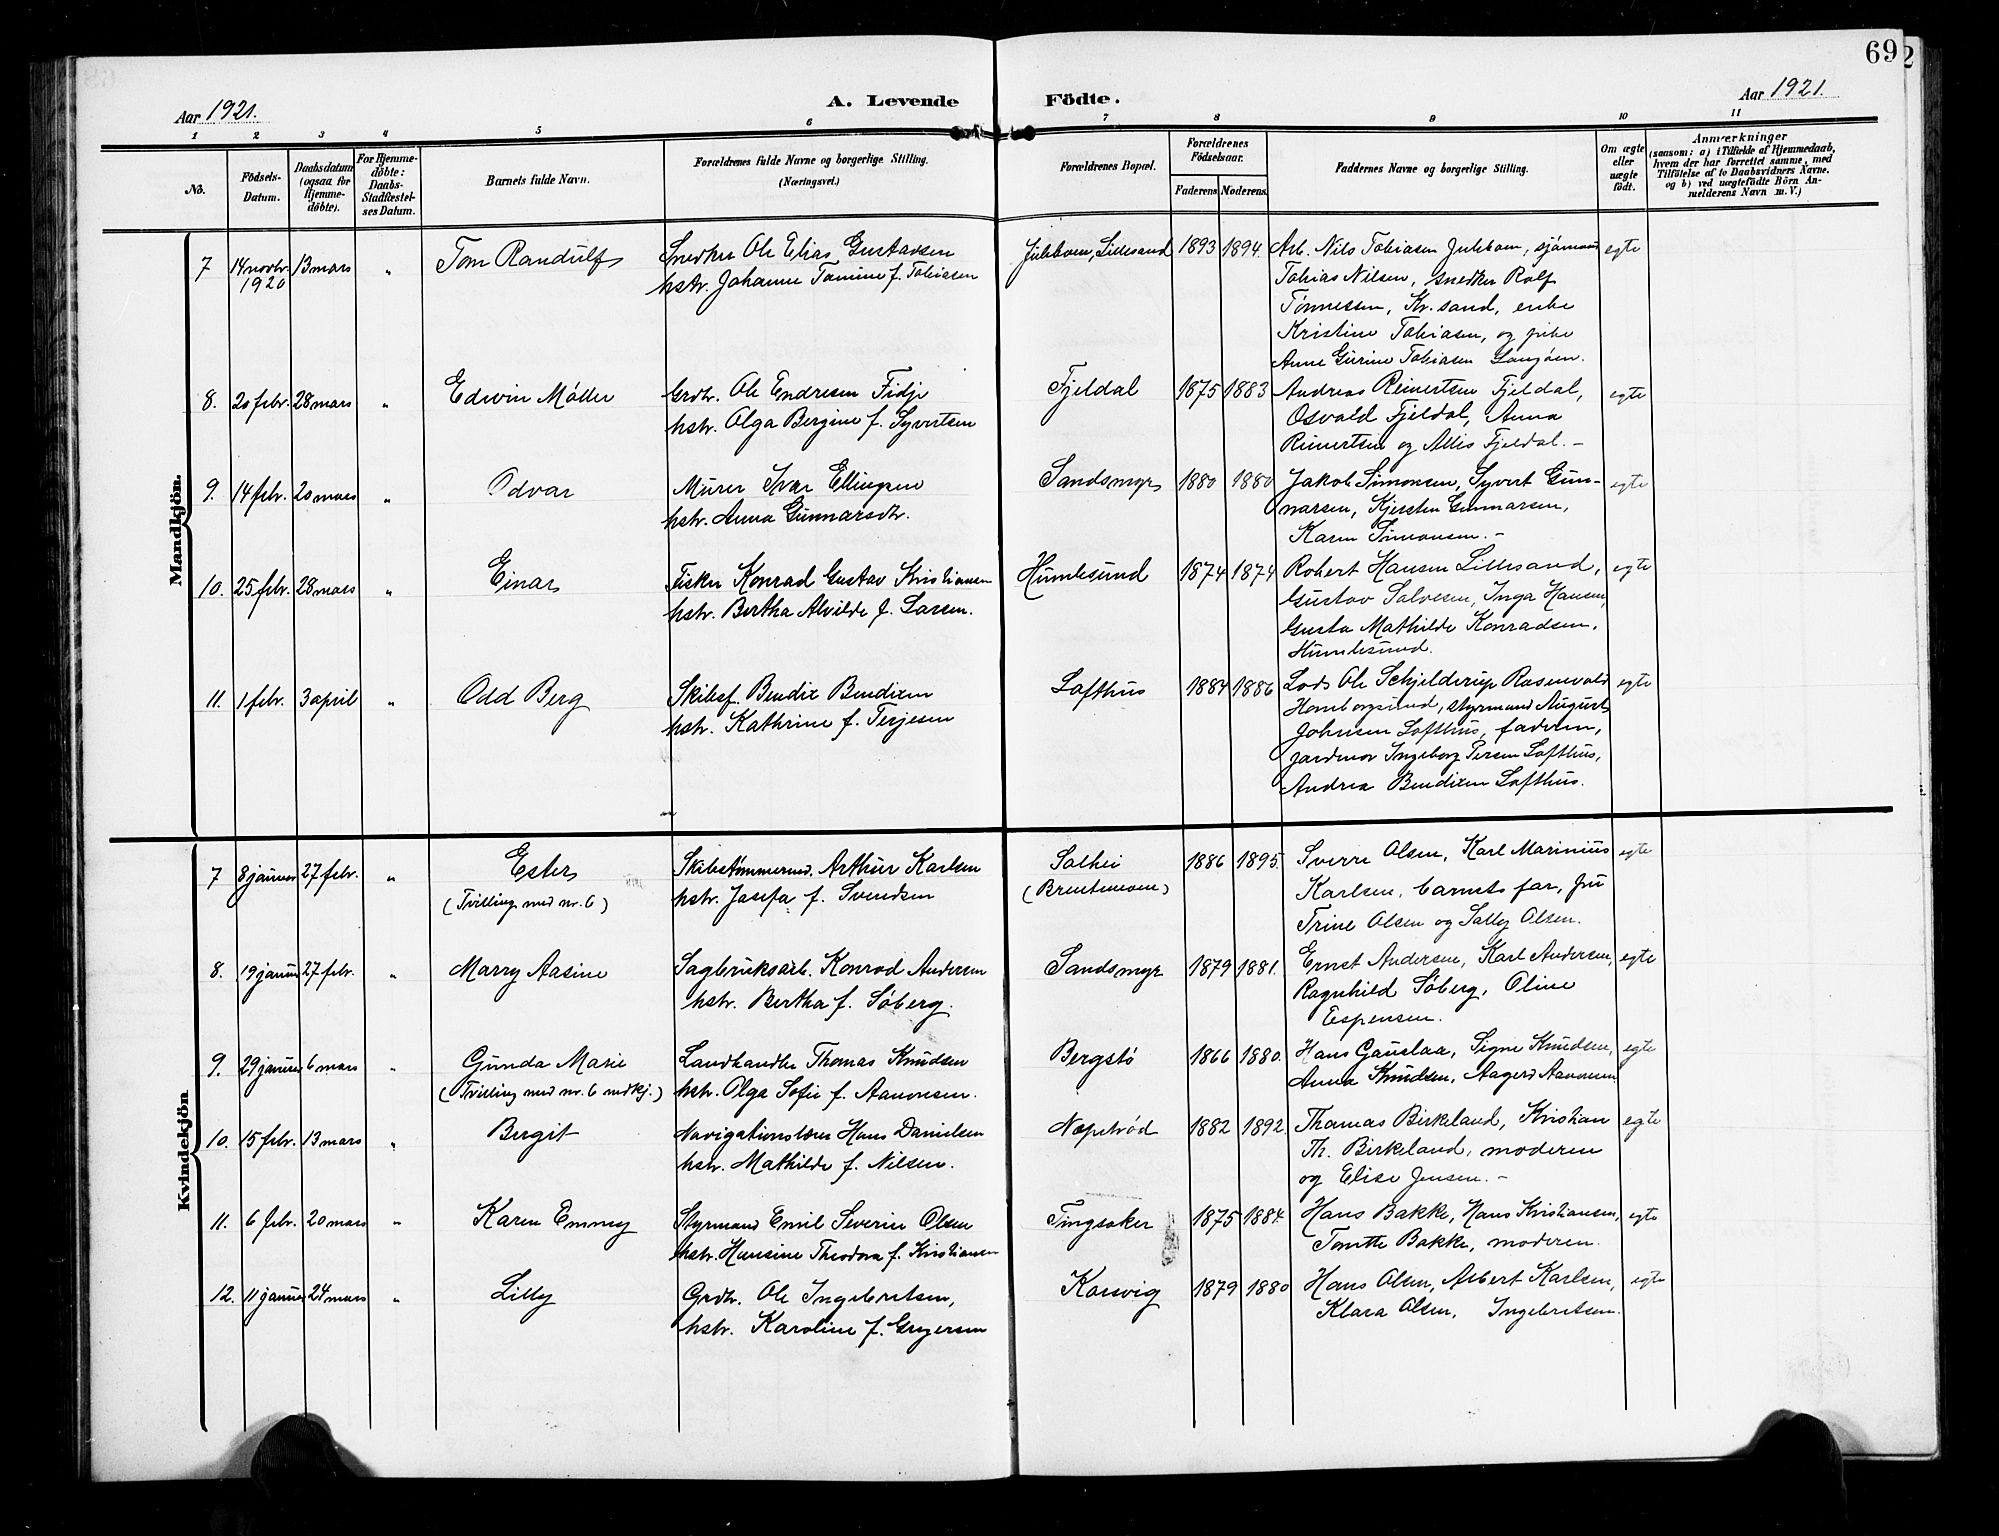 69
Aar 1921.
A. Levende Födte.
Aar 1921.
1 2 3 4 5 6 7 8 9 10 11
No.
Födsels-Datum.
Daabsdatum (ogsaa for Hjemme-döbte).
For Hjemme-döbte: Daabs-Stadfæstel-ses Datum.
Barnets fulde Navn.
Forældrenes fulde Navne og borgerlige Stilling. (Næringsvei.)
Forældrenes Bopæl.
Forældrenes Födselsaar.
Faderens Moderens.
Faddernes Navne og borgerlige Stilling.
Om ægte eller uægte födt.
Anmærkninger
(saasom: a) i Tilfælde af Hjemmedaab, hvem der har forrettet samme, med Tilföielse af to Daabsvidners Navne. og b) ved uægtefödte Börn An-melderens Navn m. V.)
Mandkjön.
7 14 novbr. 1920 13 mars " Tom Randulf Snedker Ole Elias Gustavsen Juleboen, Lillesand 1893 1894. Arb. Nils Tobiasen Juleboen, sjömand egte
hstr. Johanne Tomine f. Tobiasen Tobias Nilsen, snedker Rolf
Tønnessen, Kr.sand, enke
Kristine Tobiasen, og pike
Anne Gurine Tobiasen
8. 20 febr. 28 mars " Edwin Möller Grdbr. Ole Endresen Fidje Fjeldal 1875 1883 Andreas Reinertsen Fjeldal, egte
hstr. Olga Bergine f. Syvertsen Osvald Fjeldal, Anna
Reinertsen og Allis Fjeldal. –
9. 14 febr. 20 mars " Odvar Murer Ivar Ellingsen Sandsmyr 1880 1880 Jakob Simonsen, Syvert Gun- egte
hstr. Anna Gunnarsdtr. narsen, Kjersten Gunnarsen,
Karen Simonsen. –
10. 25 febr. 28 mars " Einar Fisker Konrad Gustav Kristiansen Humlesund 1874 1874 Robert Hansen Lillesand, egte
hstr. Bertha Alvilde f. Larsen. Gustav Salvesen, Inga Hansen,
Gusta Mathilde Konradsen,
Humlesund.
11. 1 febr. 3 april " Odd Berg Skibsf. Bendix Bendixen Lofthus 1884 1886 Lods Ole Schjelderup Rosenvold egte
hstr. Kathrine f. Terjesen Homborgsund, styrmand August
Johnsen Lofthus, faderen,
jordmor Ingeborg Persen Lofthus,
Andrea Bendixen Lofthus.
Kvindekjön
7 8 januar 27 febr. " Ester Skibstömmermd. Arthur Karlsen Solhei 1886 1895. Sverre Olsen, Karl Marinius egte
(Tvilling med nr. 6) hstr. Josefa f. Svendsen (Brentemoen) Karlsen, barnets far, fru
Trine Olsen og Sally Olsen.
8. 19 januar 27 febr. " Marry Aasine Sagbruksarb. Konrad Andersen Sandsmyr 1879 1881. Ernst Andersen, Karl Andersen, egte
hstr. Bertha f. Söberg. Ragnhild Söberg, Oline
Espensen.
9. 29 januar 6 mars " Gunda Marie Landhandler Thomas Knudsen Bergstö 1866 1880. Hans Gauslaa, Signe Knudsen, egte
(Tvilling med nr. 6 mdkj.) hstr. Olga Sofie f. Aanonsen. Anna Knudsen, Aagerd Aanonsen
10. 15 febr. 13 mars " Bergit Navigationslærer Hans Danielsen Næpetröd 1882 1892. Thomas Birkeland, Kristian egte
hstr. Mathilde f. Nilsen. Th. Birkeland, moderen
og Elise Jensen. –
11. 6 febr. 20 mars " Karen Emmy Styrmand Emil Severin Olsen Tingsaker 1875 1884. Hans Bakke, Hans Kristiansen, egte
hstr. Hansine Theodora f. Kristiansen Tomette Bakke, moderen.
12. 11 januar 24 mars " Lilly Grdbr. Ole Ingebretsen, Kosvig 1879 1880 Hans Olsen, Albert Karlsen, egte
hstr. Karoline f. Gregersen Klara Olsen, Ingebretsen.